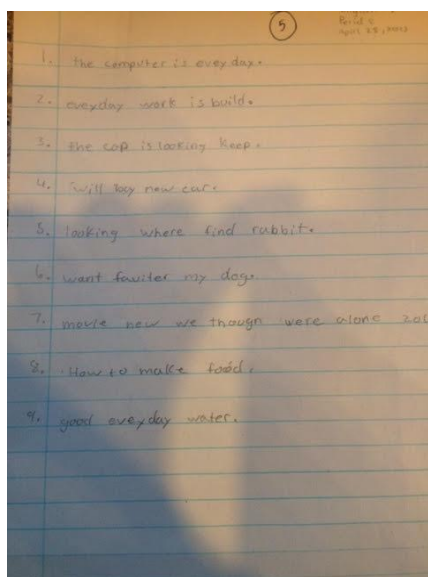 5
Period 5
April 25,
1. the computer is evey day.
2. eveyday work is build.
3. the cop is looking keep.
4. will buy new car.
5. looking where find rabbit.
6. want faviter my dog.
7. movie new we though were alone 20
8. How to make food.
9. good eveyday water.